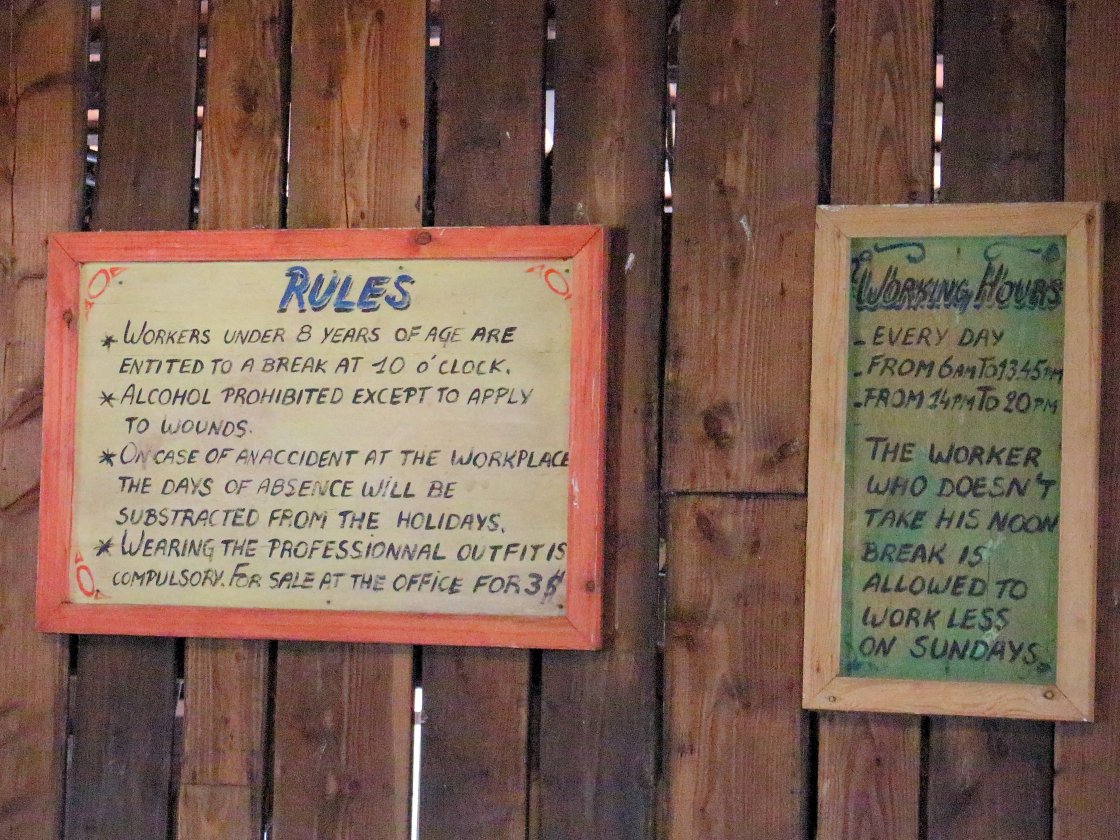 RULES
* WORKERS UNDER 8 YEARS OF AGE ARE
ENTITED TO A BREAK AT 10 O'CLOCK.
* ALCOHOL PROHIBITED EXCEPT TO APPLY
TO WOUNDS.
* ON CASE OF AN ACCIDENT AT THE WORKPLACE
THE DAYS OF ABSENCE WILL BE
SUBSTRACTED FROM THE HOLIDAYS.
* WEARING THE PROFESSIONNAL OUTFIT IS
COMPULSORY. FOR SALE AT THE OFFICE FOR 3$
WORKING HOURS
- EVERY DAY
- FROM 6AM TO 13.45PM
- FROM 14PM TO 20PM
THE WORKER
WHO DOESN'T
TAKE HIS NOON
BREAK IS
ALLOWED TO
WORK LESS
ON SUNDAYS.